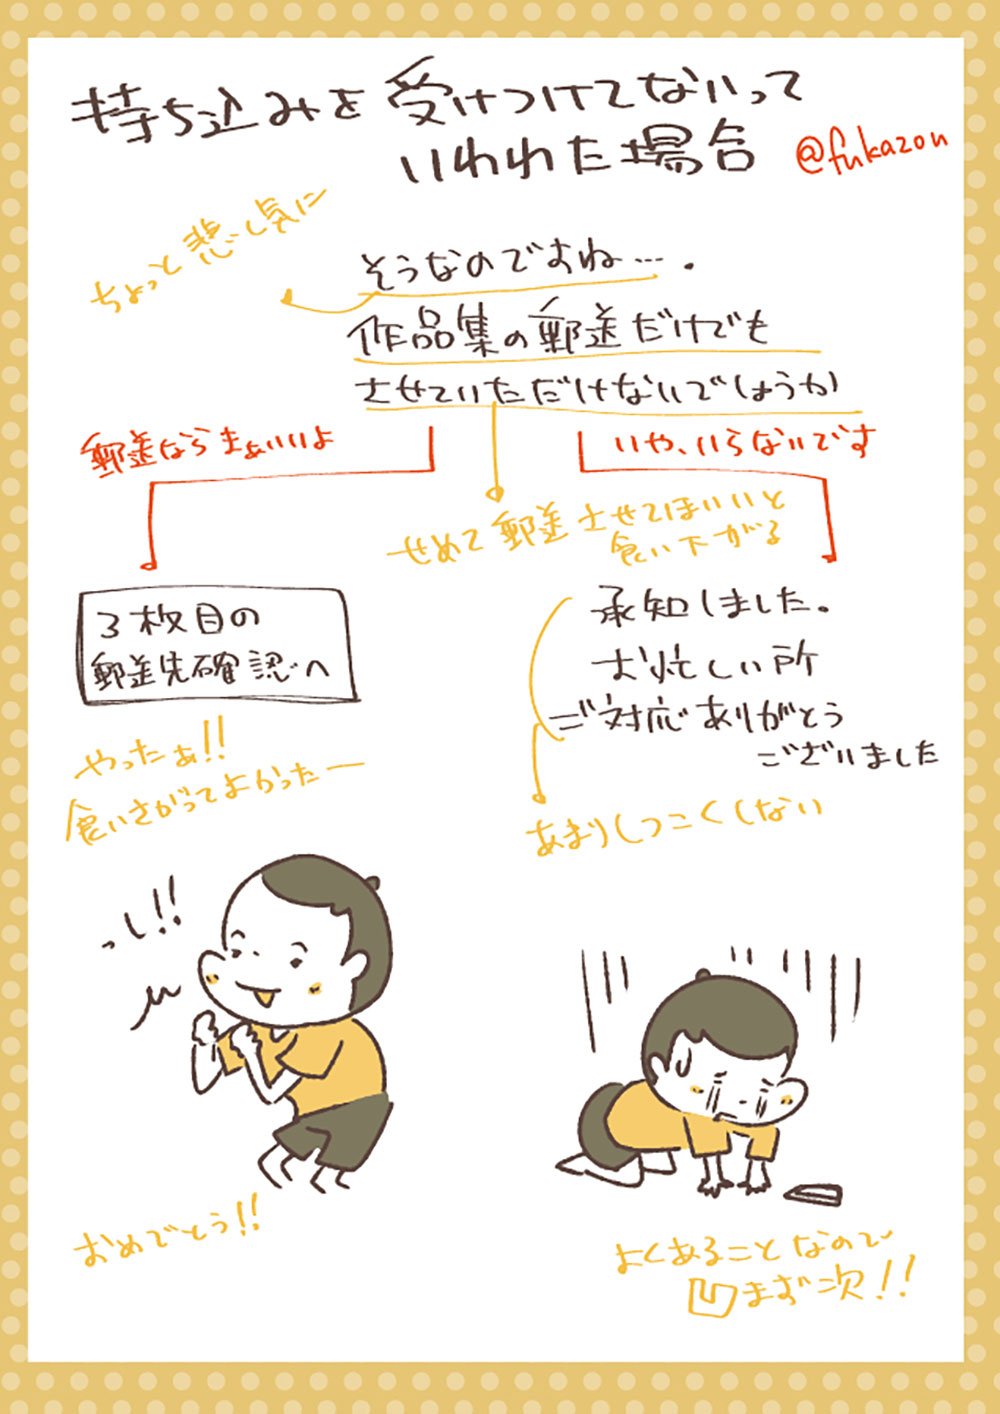 持ち込みを受けつけてないって
いわれた場合
@fukazon
ちょっと悲し気に
そうなのですね….
作品集の郵送だけでも
させていただけないでしょうか
郵送ならまぁいいよ
いや、いらないです
せめて郵送させてほしいと
食い下がる
3枚目の
郵送先確認へ
承知しました。
お忙しい所
ご対応ありがとう
ございました
やったぁ!!
食いさがってよかったー
あまりしつこくしない
っし!!
おめでとう!!
よくあることなので
凹まず次!!